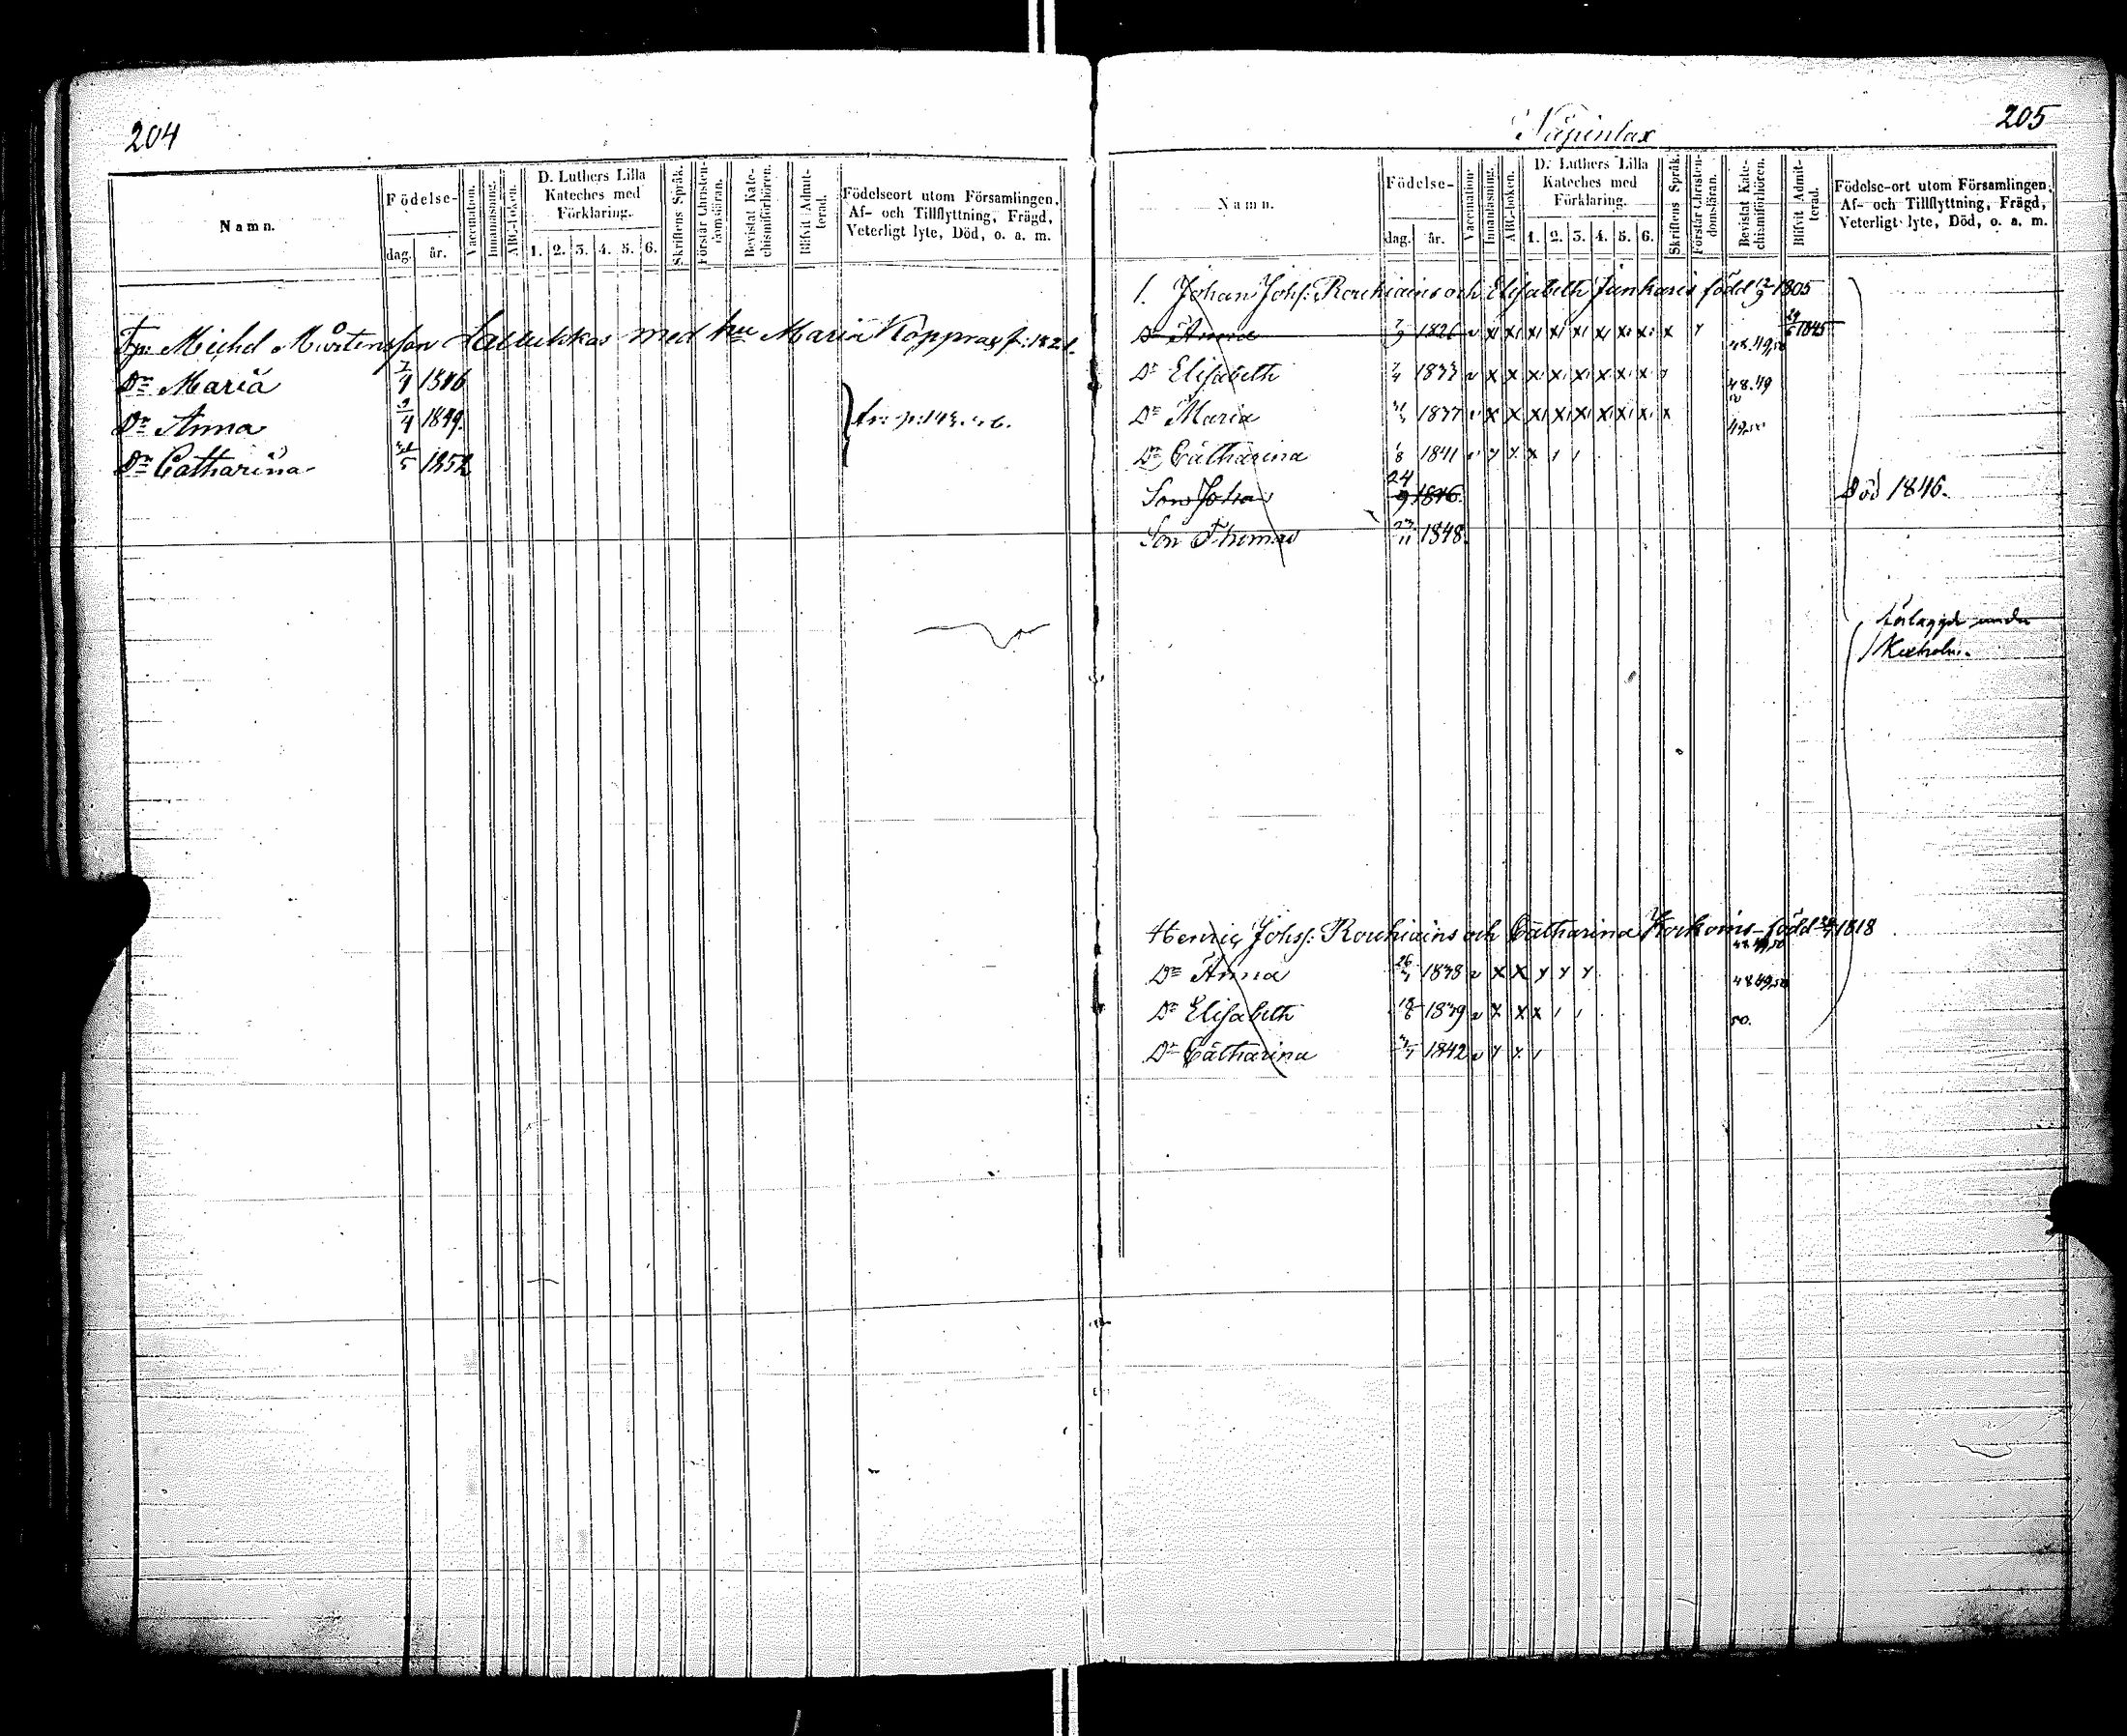 204
Namn.
Födelse-
dag.
år.
Vaccination.
Innanläsning.
ABC-boken.
D. Luthers Lilla
Kateches med
Förklaring.
1. 2. 3. 4. 5. 6.
Skriftens Språk.
Förstår Christen-
domsläran.
Bevistat Kate-
chismiförhören.
Blifvit Admit-
terad.
Födelseort utom Församlingen,
Af- och Tillflyttning, Frägd,
Veterligt lyte, Död, o. a. m.
Michel Mårtensson med hu Maria Koppraxs f: 1821.
Dr Maria 1846
Dr Anna 9/4 1849.
Dr Catharina 1852
fr: p: 143.
Näpinlax
205
Namn.
Födelse-
dag.
år.
Vaccination.
Innanläsning.
ABC-boken.
D. Luthers Lilla
Kateches med
Förklaring.
1. 2. 3. 4. 5. 6.
Skriftens Språk.
Förstår Christen-
domsläran.
Bevistat Kate-
chismiförhören.
Blifvit Admit-
terad.
Födelse-ort utom Församlingen,
Af- och Tillflyttning, Frägd,
Veterligt lyte, Död, o. a. m.
1. Johan Johs: Rouhiains och Elisabeth Junkaris född 1805
Dr Anna 1826 v x x x x x x x x x 48.49,50 1845
Dr Elisabeth 1833 v x x x x x x x x 48.49
Dr Maria 1837 x x x x x x x x x 49,50
Dr Catharina 1/8 1841
Son Johan 24/9 1846. Död 1846.
Son Thomas 23/11 1848.
under
Kexholm.
Henric Johss: Rouhiains och Catharina Korkoins född 1818
48.49,50
Dr Anna 26 1838 v x x y y y 48.49,50
Dr Elisabeth 1839 v x x x 50.
Dr Catharina 1842